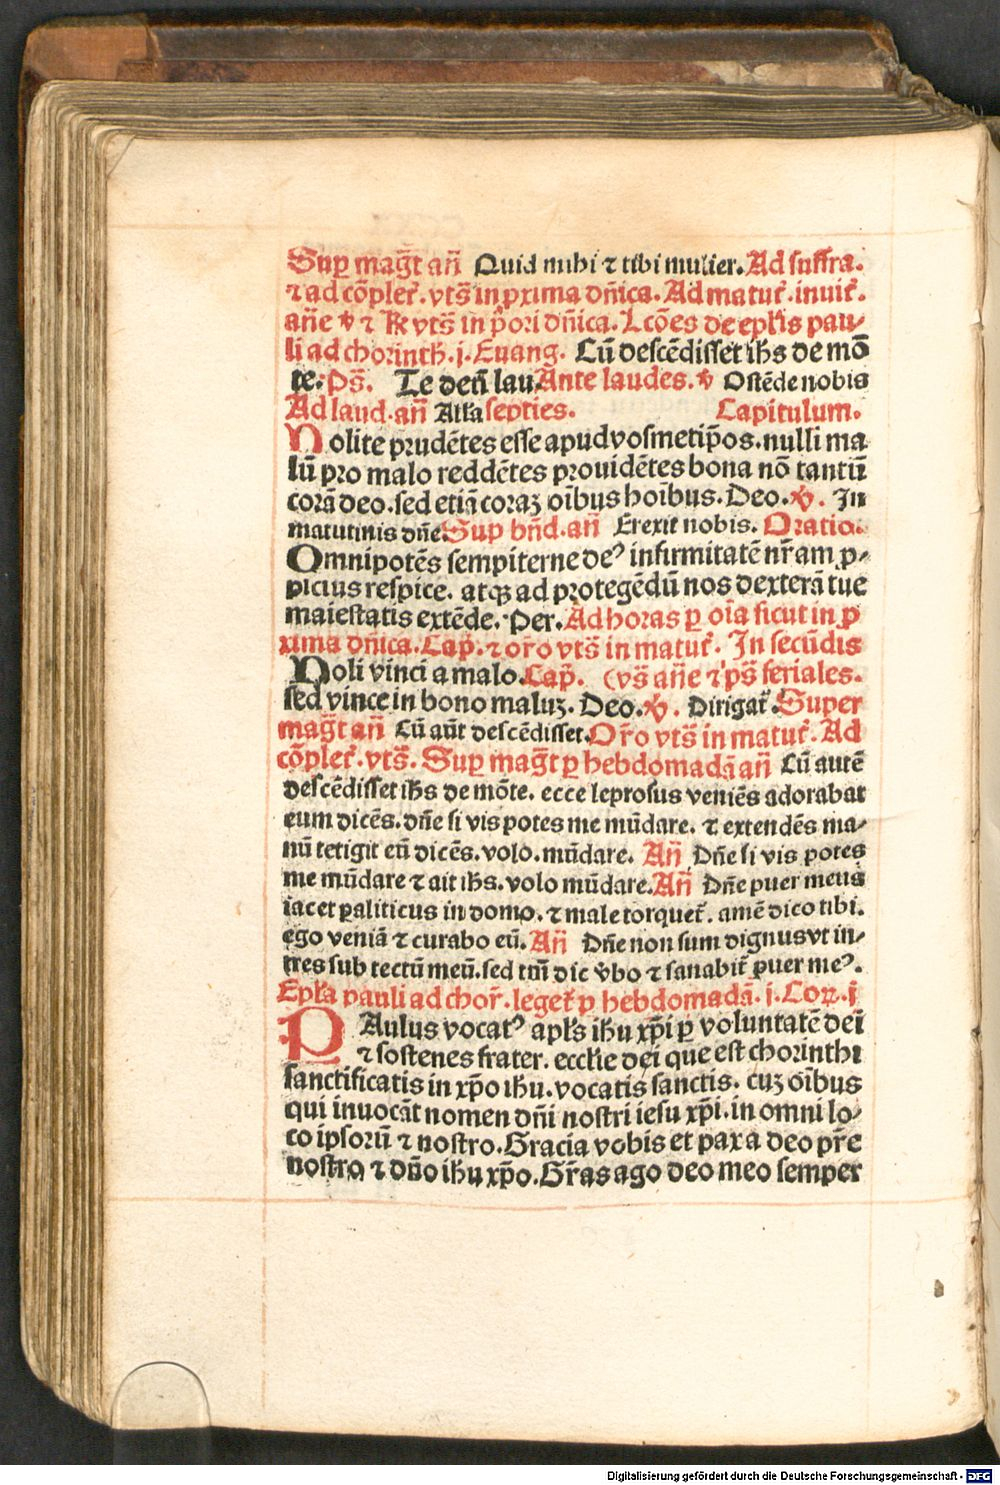 Sup̲ mag̅t an̅ Quid mihi ⁊ tibi mulier. Ad suffra.
⁊ ad co̅plet᷑. vts̅ in p̲xima dn̅ica. Ad matut᷑. inuit᷑.
an̅e ℣ ⁊ ℟ vts̅ in p̅ori dn̅ica. Lco̅es de epl̅is pau-
li ad chorinth. j. Euang. Cu̅ desce̅disset ih̅s de mo̅
te: Ps̅. Te deu̅ lau Ante laudes. ℣ Oste̅de nobis
Ad laud. an̅ All̅a septies. Capitulum.
Nolite prude̅tes esse apud vosmetip̅os. nulli ma
lu̅ pro malo redde̅tes prouide̅tes bona no̅ tantu̅
cora̅ deo. sed etia̅ coraꝫ oi̅bus hoi̅bus. Deo. ℣. In
matutinis dn̅e Sup bn̅d. an̅ Erexit nobis. Oratio.
Omnipote̅s sempiterne deꝰ infirmitate̅ nr̅am p̲-
picius respice. atqꝫ ad protege̅du̅ nos dextera̅ tue
maiestatis exte̅de. Per. Ad horas p̲ oi̅a sicut in p̲
xima dn̅ica. Cap̅. ⁊ or̅o vts̅ in matut᷑. In secu̅dis
Noli vinci a malo. Cap̅. (vs̅ an̅e ⁊ ps̅ feriales.
sed vince in bono maluꝫ. Deo. ℣. Dirigat᷑. Super
mag̅t an̅ Cu̅ au̅t desce̅disset. Or̅o vts̅ in matut᷑. Ad
co̅plet᷑. vts̅. Sup̲ mag̅t p̲ hebdomada̅ an̅ Cu̅ aute̅
desce̅disset ih̅s de mo̅te. ecce leprosus venie̅s adorabat
eum dice̅s. dn̅e si vis potes me mu̅dare. ⁊ extende̅s ma-
nu̅ tetigit eu̅ dice̅s. volo. mu̅dare. An̅ Dn̅e si vis potes
me mu̅dare ⁊ ait ih̅s. volo mu̅dare. An̅ Dn̅e puer meus
iacet p̲aliticus in domo. ⁊ male torquet᷑. ame̅ dico tibi.
ego venia̅ ⁊ curabo eu̅. An̅ Dn̅e non sum dignus vt in-
tres sub tectu̅ meu̅. sed tm̅ dic v̅bo ⁊ sanabit᷑ puer meꝰ.
Epl̅a pauli ad chor̅. leget᷑ p̲ hebdomada̅. j. Coꝝ. j
PAulus vocatꝰ apl̅s ih̅u xp̅i p̲ voluntate̅ dei
⁊ sostenes frater. eccl̅ie dei que est chorinthi
sanctificatis in xp̅o ih̅u. vocatis sanctis. cuꝫ oi̅bus
qui inuoca̅t nomen dn̅i nostri iesu xp̅i. in omni lo-
co ipsoru̅ ⁊ nostro. Gracia vobis et pax a deo pr̅e
nostro ⁊ dn̅o ih̅u xp̅o. Gr̅as ago deo meo semper
Digitalisierung gefördert durch die Deutsche Forschungsgemeinschaft - DFG